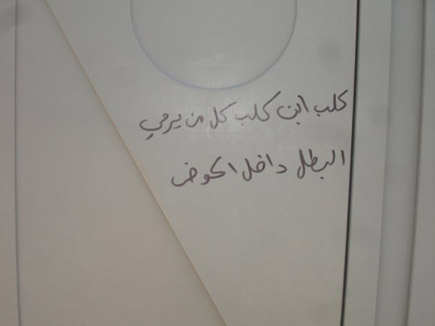 كلب ابن كلب كل من يرمي
البطل داخل الحوض